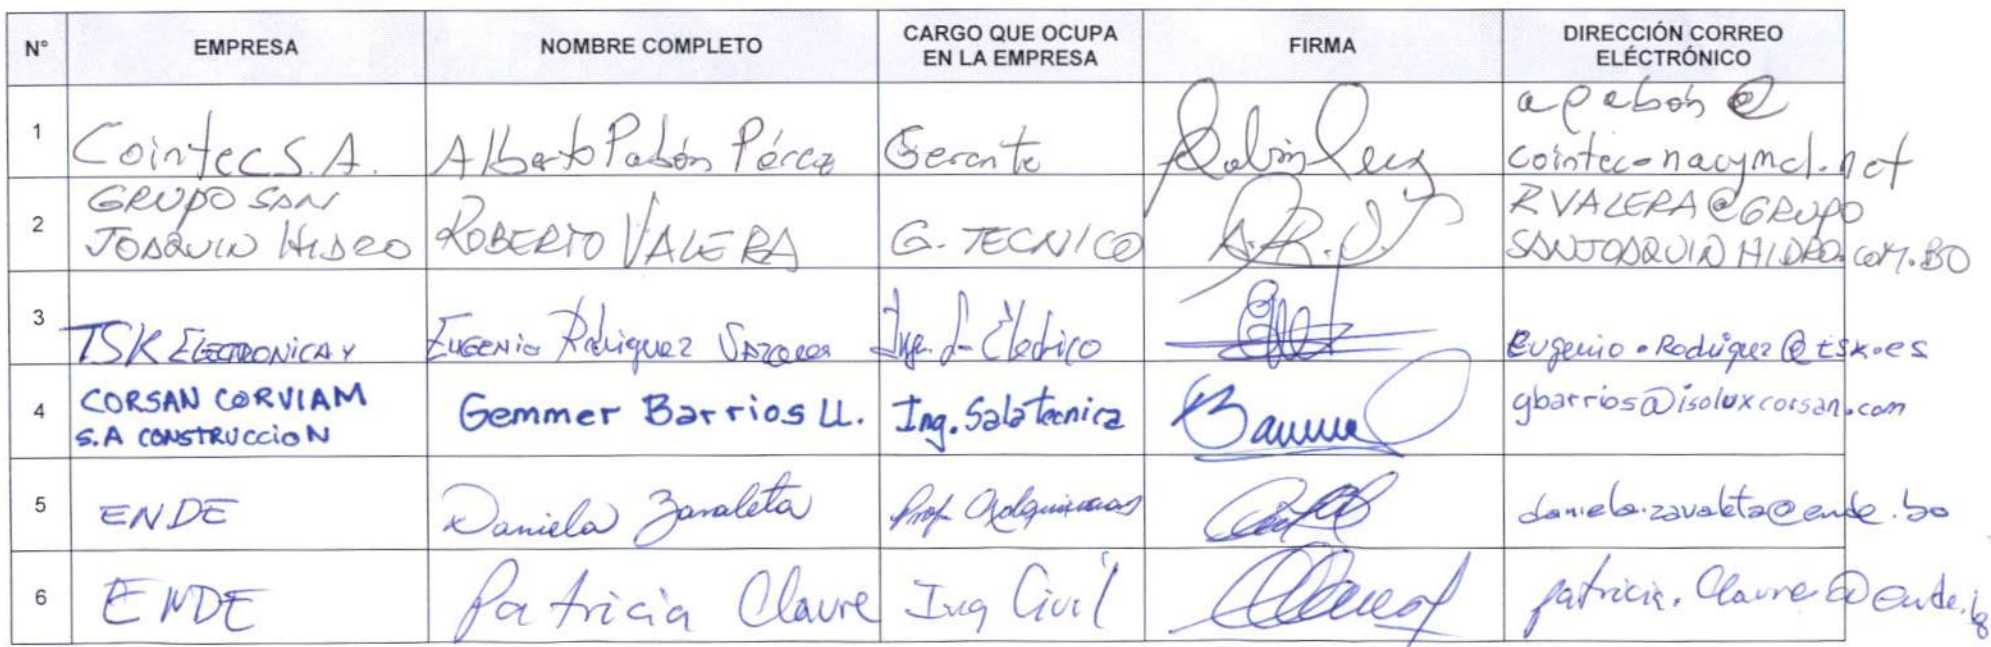 N° EMPRESA NOMBRE COMPLETO CARGO QUE OCUPA EN LA EMPRESA FIRMA DIRECCIÓN CORREO ELÉCTRÓNICO
1 Cointec S.A. Alberto Pabón Pérez Gerente apabon@
cointec-nacymcl.net
2 GRUPO SAN JOAQUIN HIDRO ROBERTO VALERA G. TECNICO RVALERA@GRUPO
SANJOAQUINHIDRO.COM.BO
3 TSK ELECTRONICA Y EUGENIO Rodriguez Ing. Eléctrico Eugenio.Rodriguez@tsk.es
4 CORSAN CORVIAM
S.A CONSTRUCCIÓN Gemmer Barrios LL. Ing. Sala tecnica gbarrios@isoluxcorsan.com
5 ENDE Daniela Zavaleta Prof. Adquisiciones daniela.zavaleta@ende.bo
6 ENDE Patricia Claure Ing Civil patricia.Claure@ende.bo